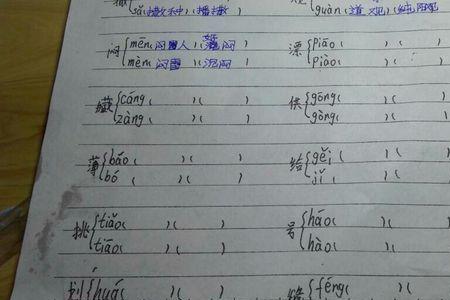 sǎ(撒种)(播撒) guàn(道观)(
闷 mēn( )( 闷) 漂 piāo(
mèn( )(沉闷) piào(
藏 cáng( )( ) 供 gōng( )(
zàng( )( ) gòng( )(
薄 báo( )( ) 给 gěi( )(
bó( )( ) jǐ( )(
挑 tiǎo( )( ) 号 háo( )(
tiāo( )( ) hào( )(
划 huá( 缝 féng(